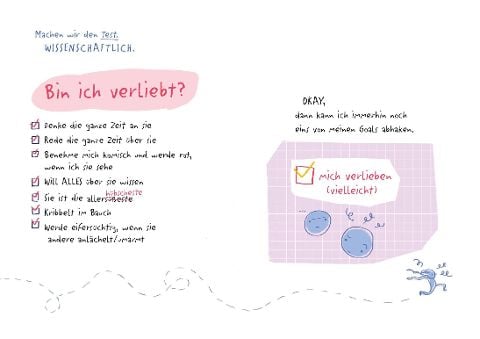 Machen wir den Test.
WISSENSCHAFTLICH.
Bin ich verliebt?
Denke die ganze Zeit an sie
Rede die ganze Zeit über sie
Benehme mich komisch und werde rot,
wenn ich sie sehe
Will ALLES über sie wissen
hübscheste
Sie ist die allersüßeste
Kribbelt im Bauch
Werde eifersüchtig, wenn sie
andere anlächelt/umarmt
OKAY,
dann kann ich immerhin noch
eins von meinen Goals abhaken.
mich verlieben
(vielleicht)